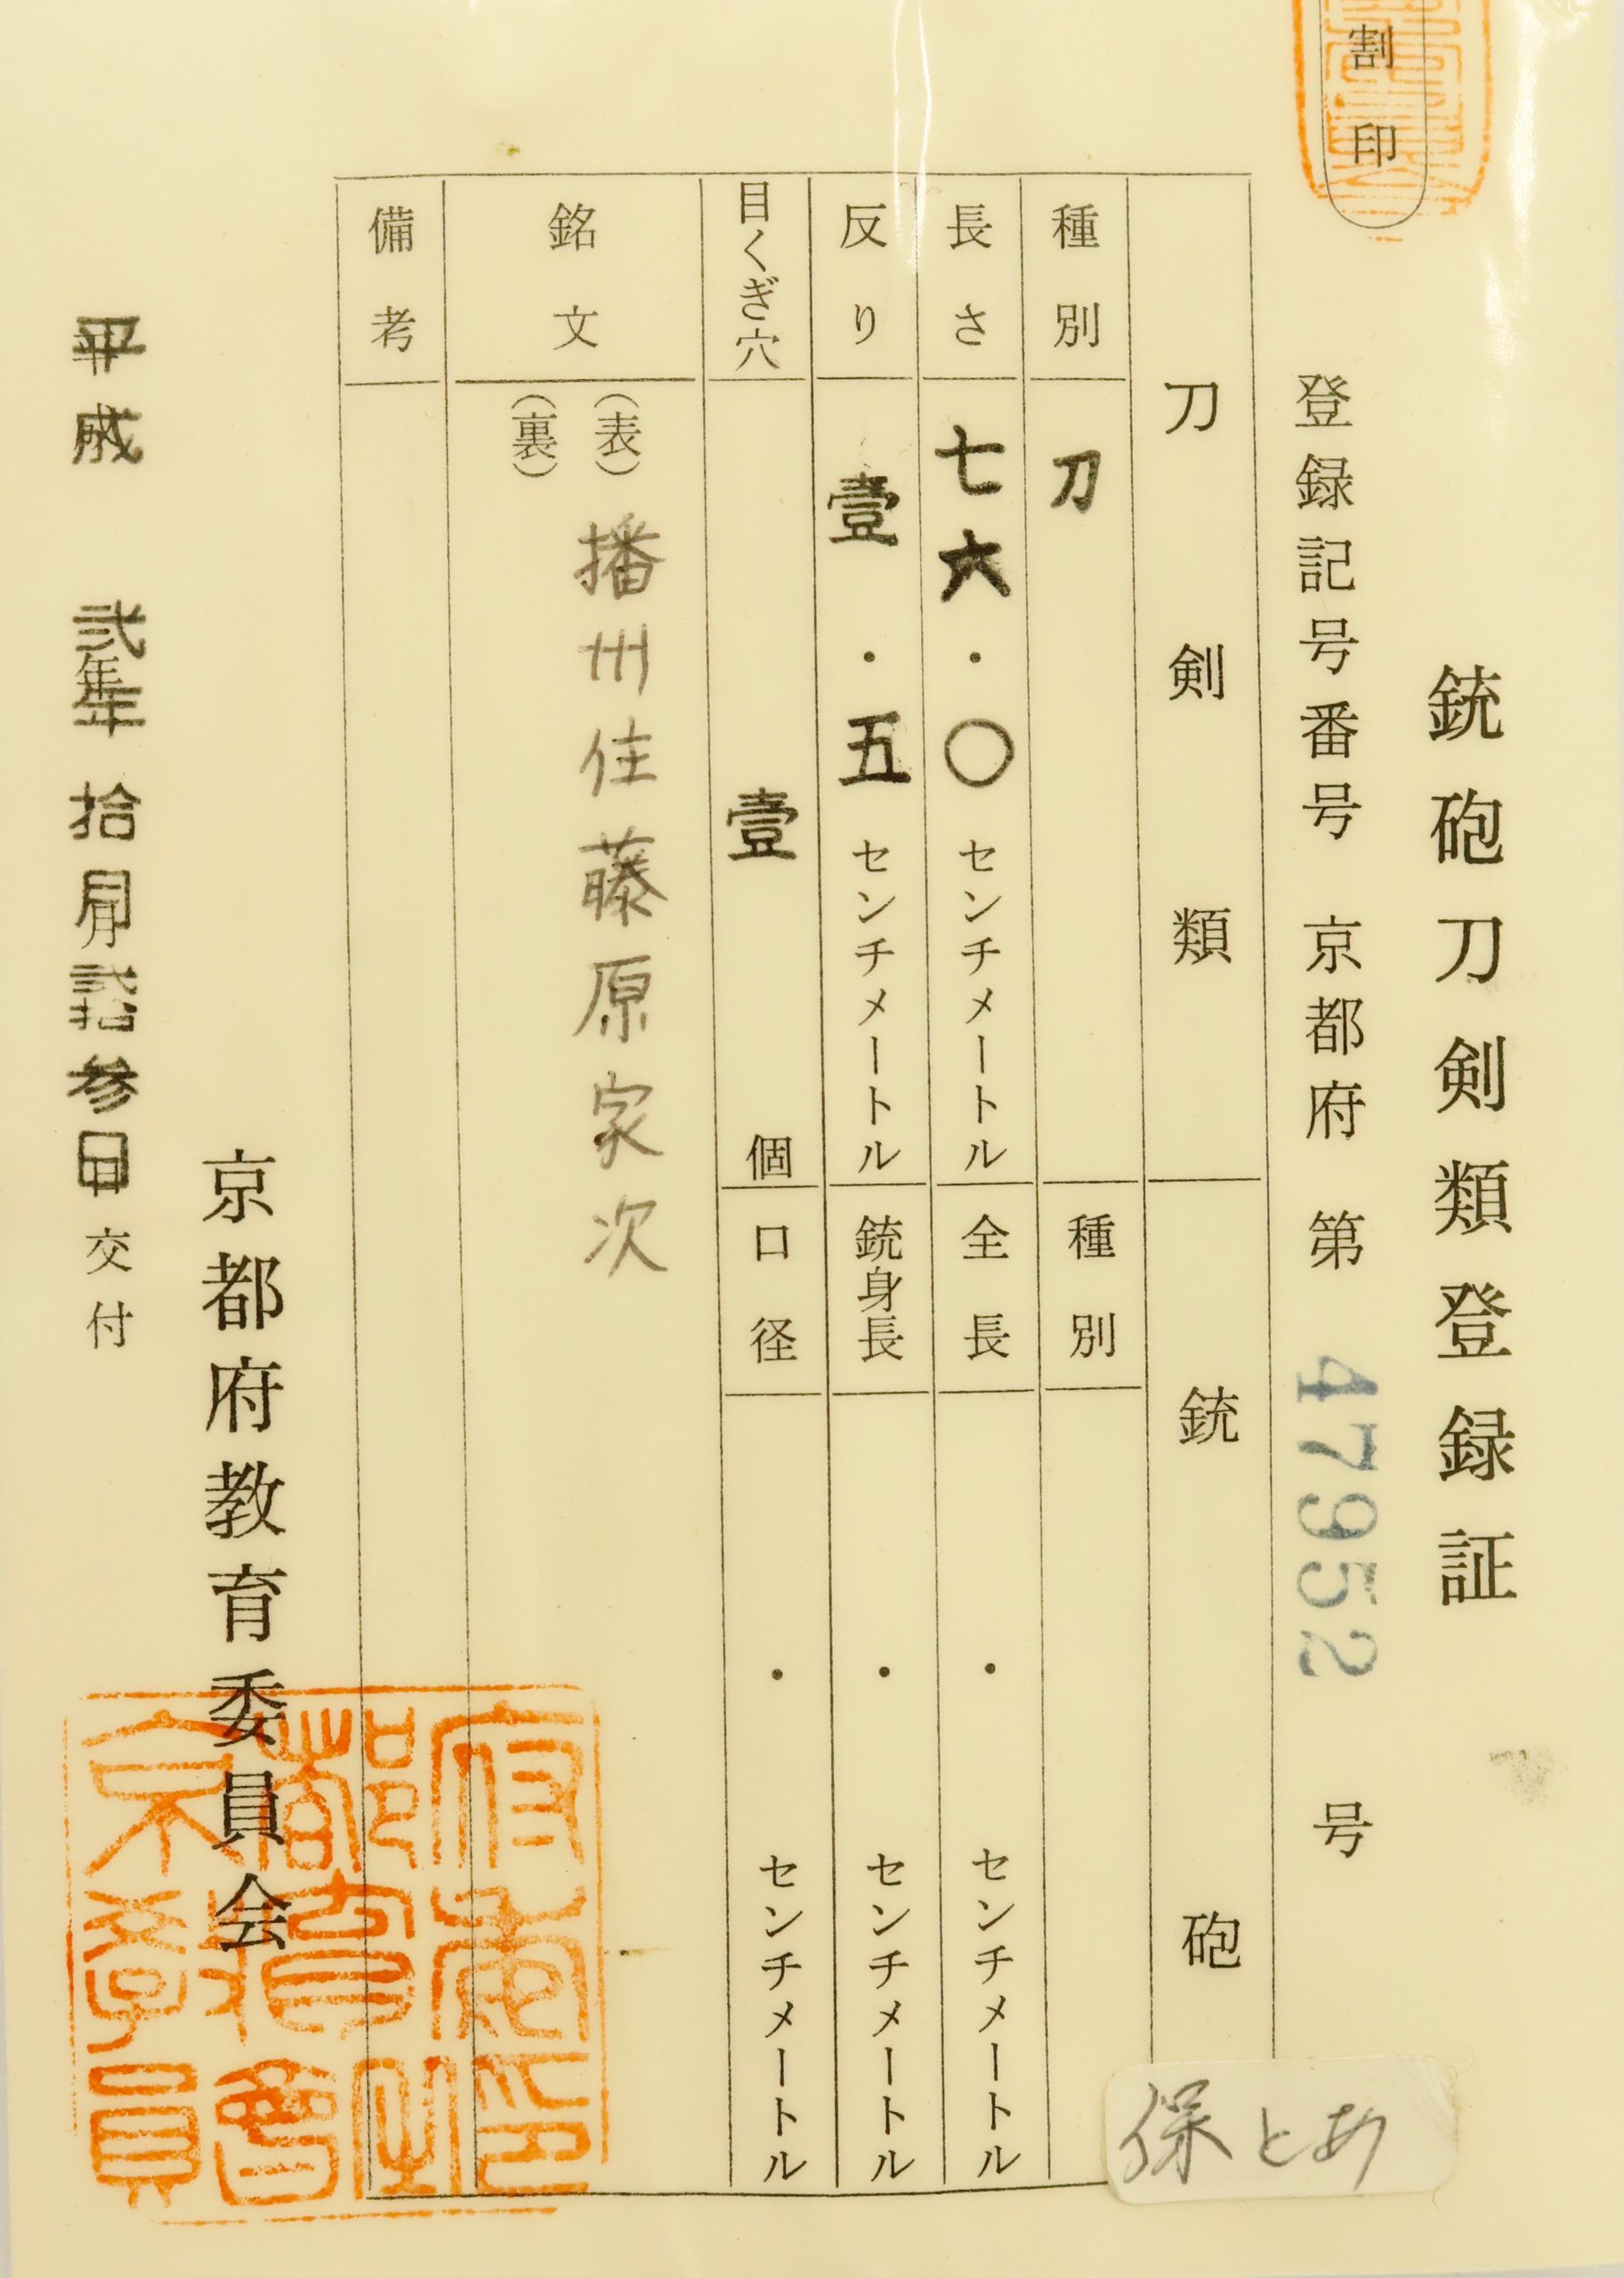 割印
銃砲刀剣類登録証
登録記号番号 京都府 第 47952 号
刀剣類
種別 刀
長さ 七六・〇センチメートル
反り 壹・五センチメートル
目くぎ穴 壹 個
銃砲
種別
全長 ・ センチメートル
銃身長 ・ センチメートル
口径 ・ センチメートル
銘文
(表) 播州住藤原家次
(裏)
備考
京都府教育委員会
平成 弐年 拾月 弐拾参日 交付
京都府教育委員會印
保とあ